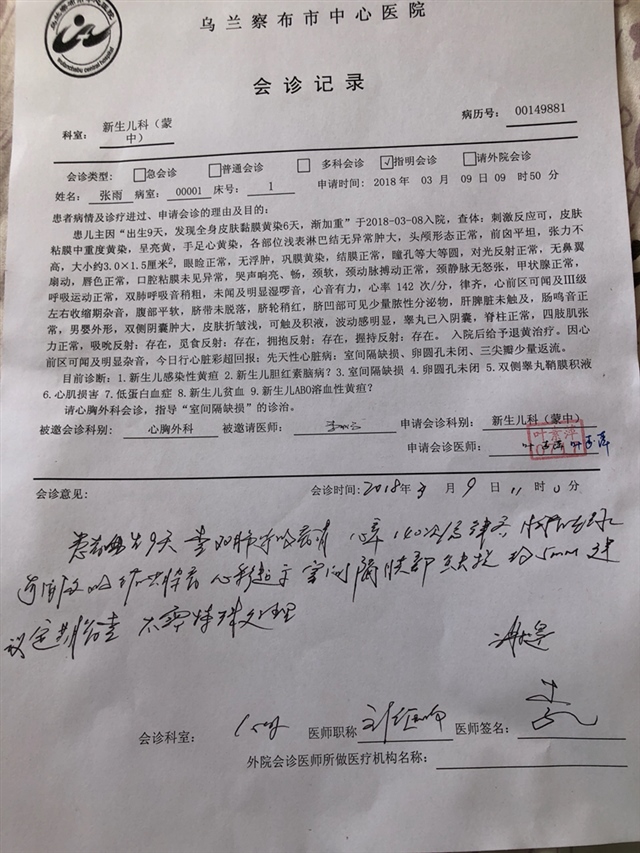 乌兰察布市中心医院
会诊记录
科室: 新生儿科（蒙中） 病历号: 00149881
会诊类型: □急会诊 □普通会诊 □多科会诊 ☑指明会诊 □请外院会诊
姓名: 张雨 病室: 00001 床号: 1 申请时间: 2018 年 03 月 09 日 09 时 50 分
患者病情及诊疗进过、申请会诊的理由及目的:
患儿主因“出生9天，发现全身皮肤黏膜黄染6天，渐加重”于2018-03-08入院，查体: 刺激反应可，皮肤
粘膜中重度黄染，呈亮黄，手足心黄染，各部位浅表淋巴结无异常肿大，头颅形态正常，前囟平坦，张力不
高，大小约3.0×1.5厘米²，眼睑正常，无浮肿，巩膜黄染，结膜正常，瞳孔等大等圆，对光反射正常，无鼻翼
扇动，唇色正常，口腔粘膜未见异常，哭声响亮、畅，颈软，颈动脉搏动正常，颈静脉无怒张，甲状腺正常，
呼吸运动正常，双肺呼吸音稍粗，未闻及明显湿啰音，心音有力，心率 142 次/分，律齐，心前区可闻及III级
左右收缩期杂音，腹部平软，脐带未脱落，脐轮稍红，脐凹部可见少量脓性分泌物，肝脾脏未触及，肠鸣音正
常，男婴外形，双侧阴囊肿大，皮肤折皱浅，可触及积液，波动感明显，睾丸已入阴囊，脊柱正常，四肢肌张
力正常，吸吮反射: 存在，觅食反射: 存在，拥抱反射: 存在，握持反射: 存在。 入院后给予退黄治疗。因心
前区可闻及明显杂音，今日行心脏彩超回报: 先天性心脏病: 室间隔缺损、卵圆孔未闭、三尖瓣少量返流。
目前诊断: 1.新生儿感染性黄疸 2.新生儿胆红素脑病? 3.室间隔缺损 4.卵圆孔未闭 5.双侧睾丸鞘膜积液
6.心肌损害 7.低蛋白血症 8.新生儿贫血 9.新生儿ABO溶血性黄疸?
请心胸外科会诊，指导“室间隔缺损”的诊治。
被邀会诊科别: 心胸外科 被邀请医师: 申请会诊科别: 新生儿科（蒙中）
申请会诊医师:
会诊意见: 会诊时间: 2018年 3 月 9 日 11 时 0 分
患者出生9天 查双肺呼吸音清 心率 140次/分 律齐
心彩超示 室间隔肤部缺损 约5mm 建
议定期检查 不需特殊处理
会诊科室: 医师职称 医师签名:
外院会诊医师所做医疗机构名称: